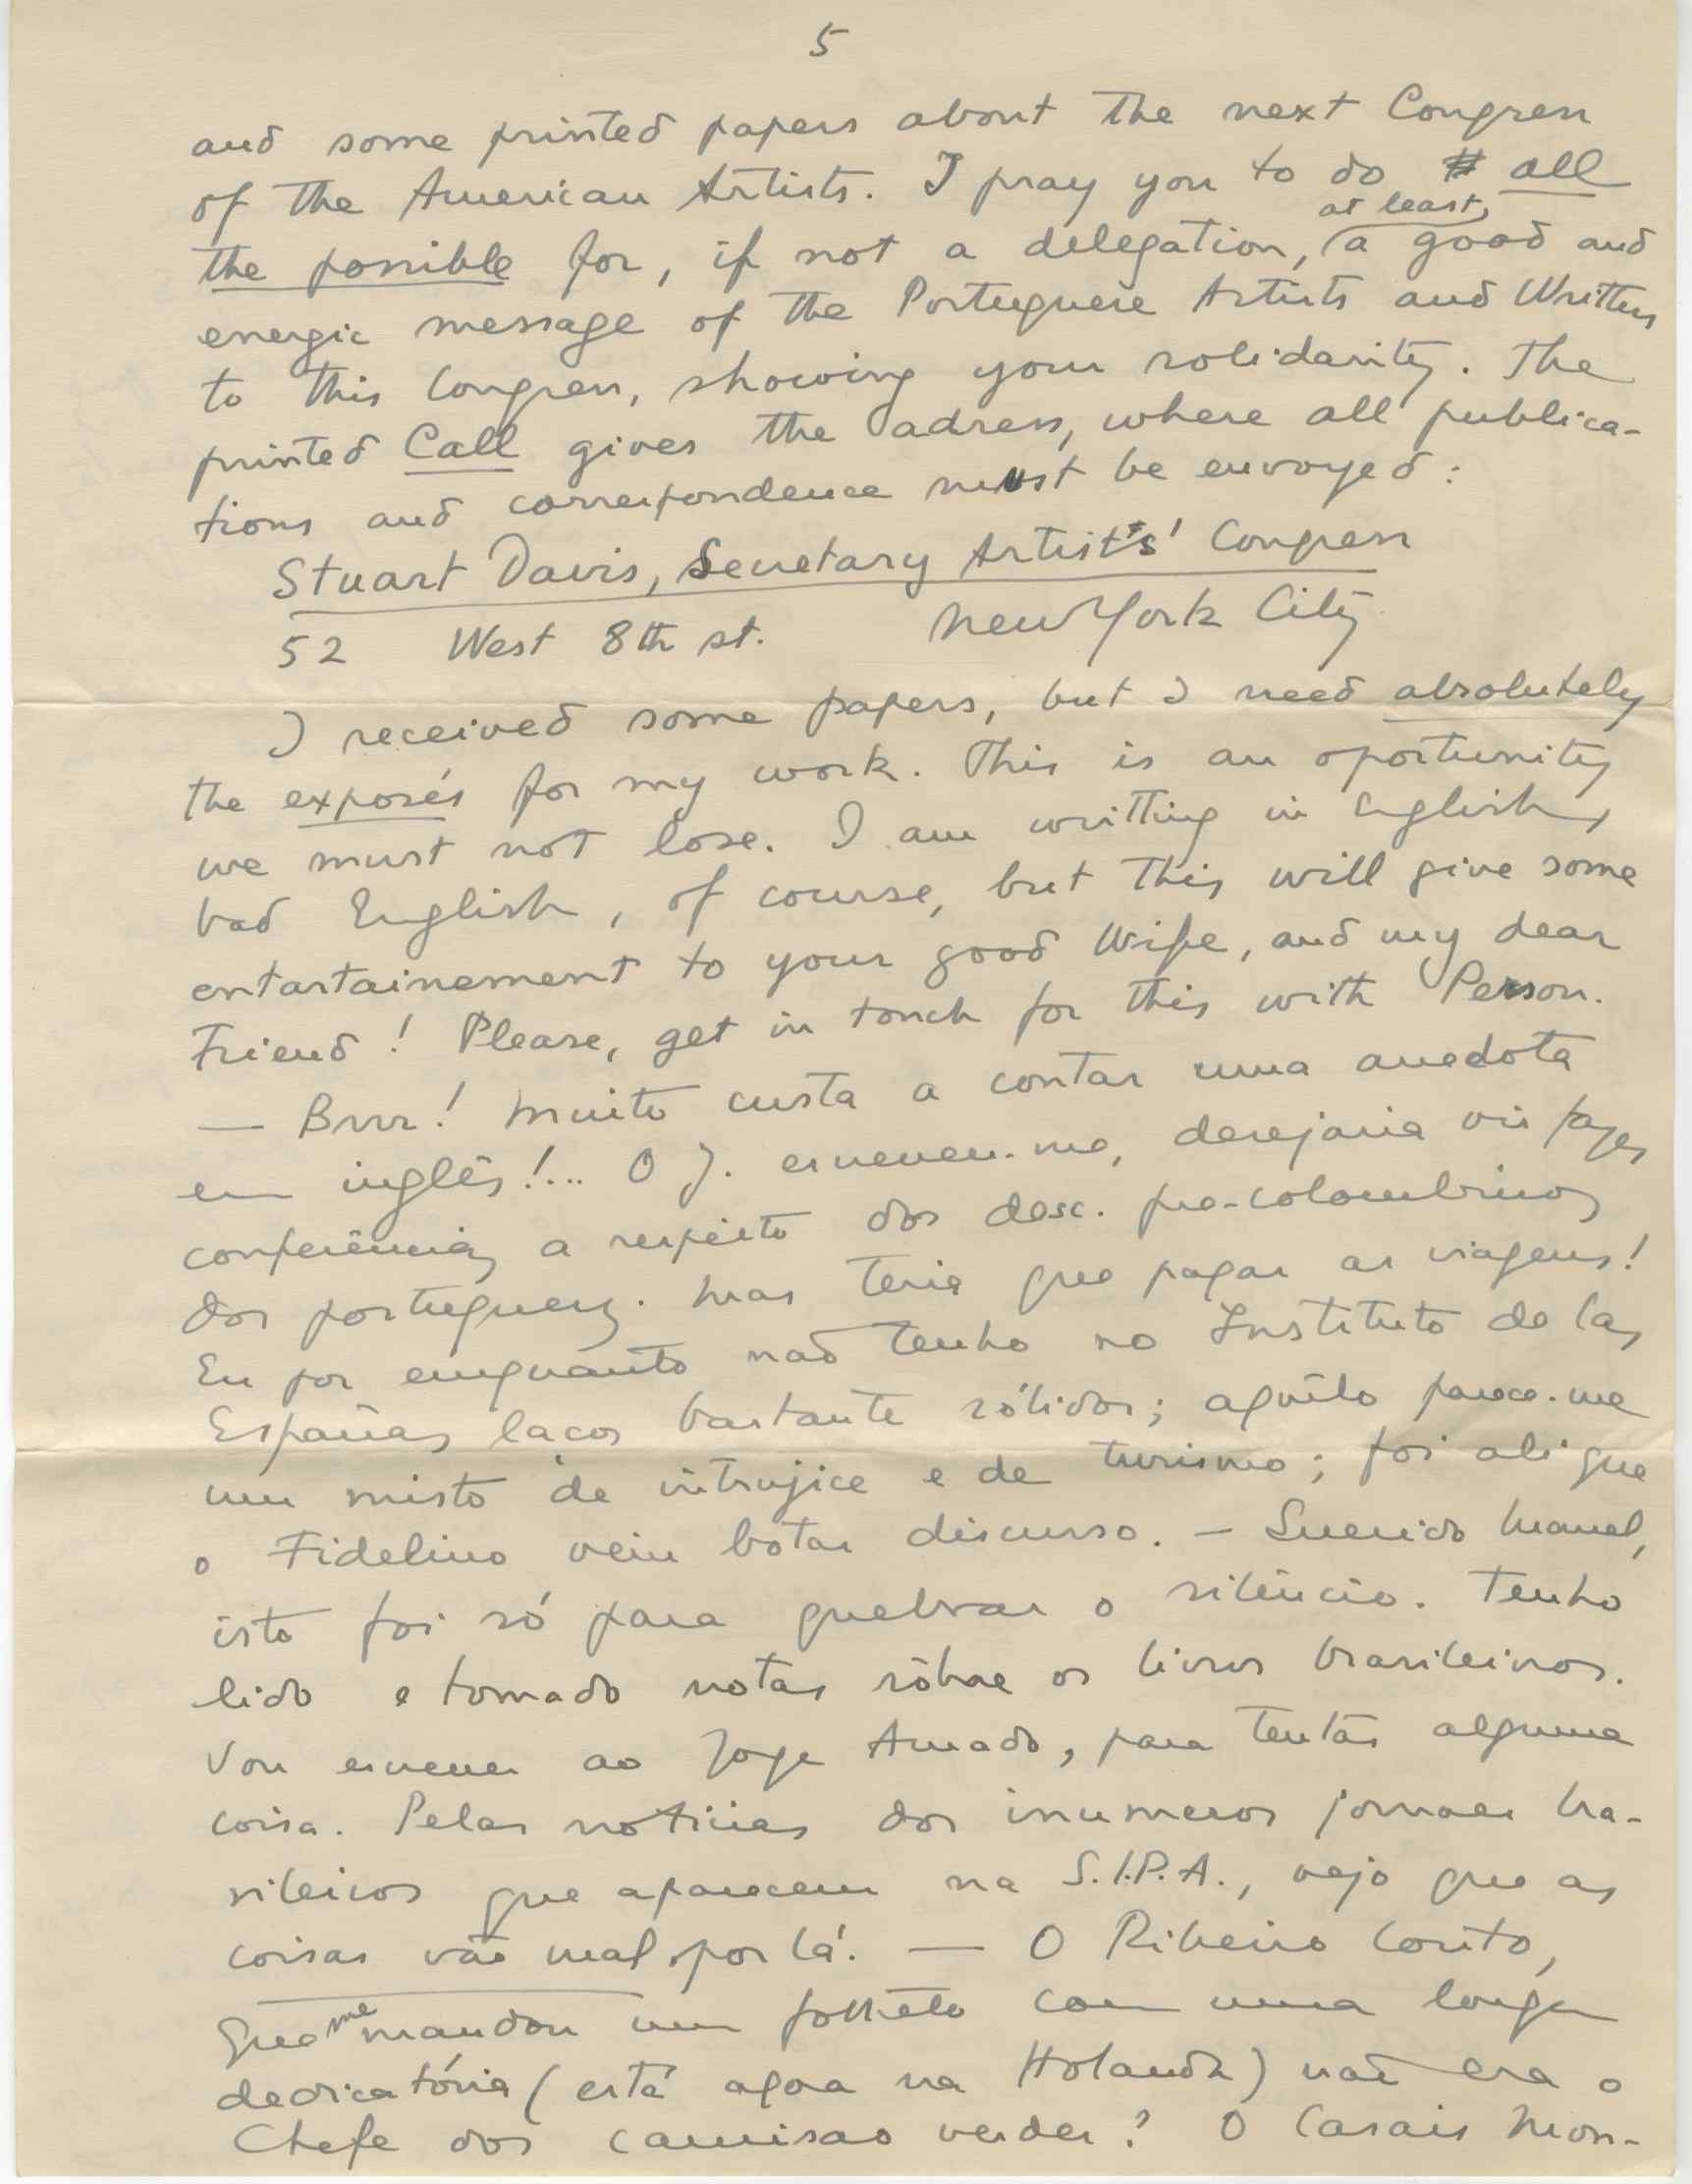 5
and some printed papers about the next Congress
of the American Artists. I pray you to do all
at least,
the possible for, if not a delegation, a good and
energic message of the Portuguese Artists and Writters
to this Congress, showing your solidarity. The
printed Call gives the adress, where all publica-
tions and correspondence must be envoyed:
Stuart Davis, Secretary Artists' Congress
52 West 8th st. New York City
I received some papers, but I need absolutely
the exposés for my work. This is an oportunity
we must not lose. I am writting in English,
bad English, of course, but this will give some
entartainement to your good Wife, and my dear
Friend! Please, get in touch for this with Person.
— Brrr! Muito custa a contar uma anedota
em inglês!... O J. escreveu-me, desejaria vir fazer
conferências a respeito dos desc. pre-colombinos
dos portugueses. Mas teria que pagar as viagens!
Eu por emquanto não tenho no Instituto de las
Españas laços bastante sólidos; aquilo parece-me
um misto de intrujice e de turismo; foi ali que
o Fidelino veiu botar discurso. — Querido Manel,
isto foi só para quebrar o silêncio. Tenho
lido e tomado notas sôbre os livros brasileiros.
Vou escrever ao Jorge Amado, para tentar alguma
coisa. Pelas noticias dos inumeros jornaes bra-
sileiros que aparecem na S.I.P.A., vejo que as
coisas vão mal por lá. — O Ribeiro Couto,
que me mandou um folheto com uma longa
dedicatória (está agora na Holanda) não era o
Chefe dos camisas verdes? O Casais Mon-